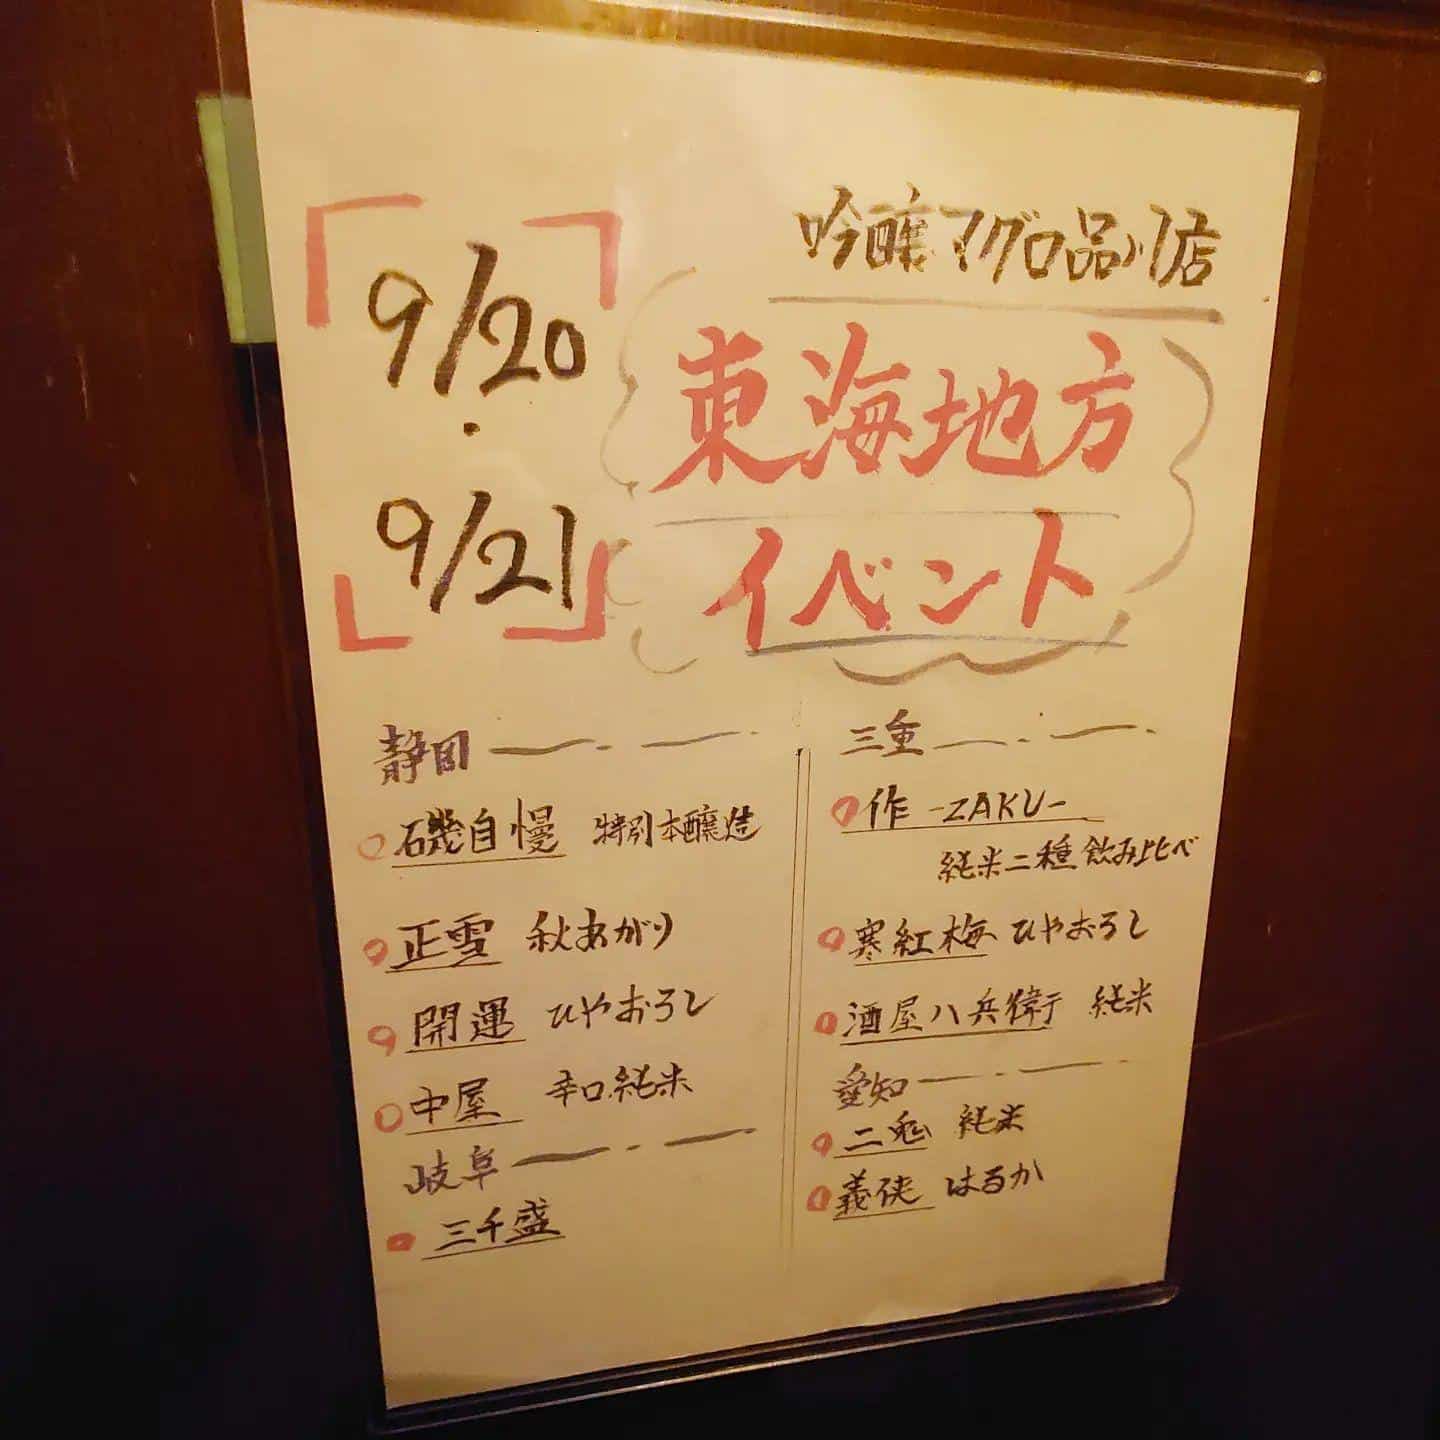 吟醸マグロ品川店
9/20
・
9/21
東海地方
イベント
静岡
磯自慢 特別本醸造
正雪 秋あがり
開運 ひやおろし
中屋 辛口純米
岐阜
三千盛
三重
作 -ZAKU-
純米二種飲み比べ
寒紅梅 ひやおろし
酒屋八兵衛 純米
愛知
二兎 純米
義侠 はるか